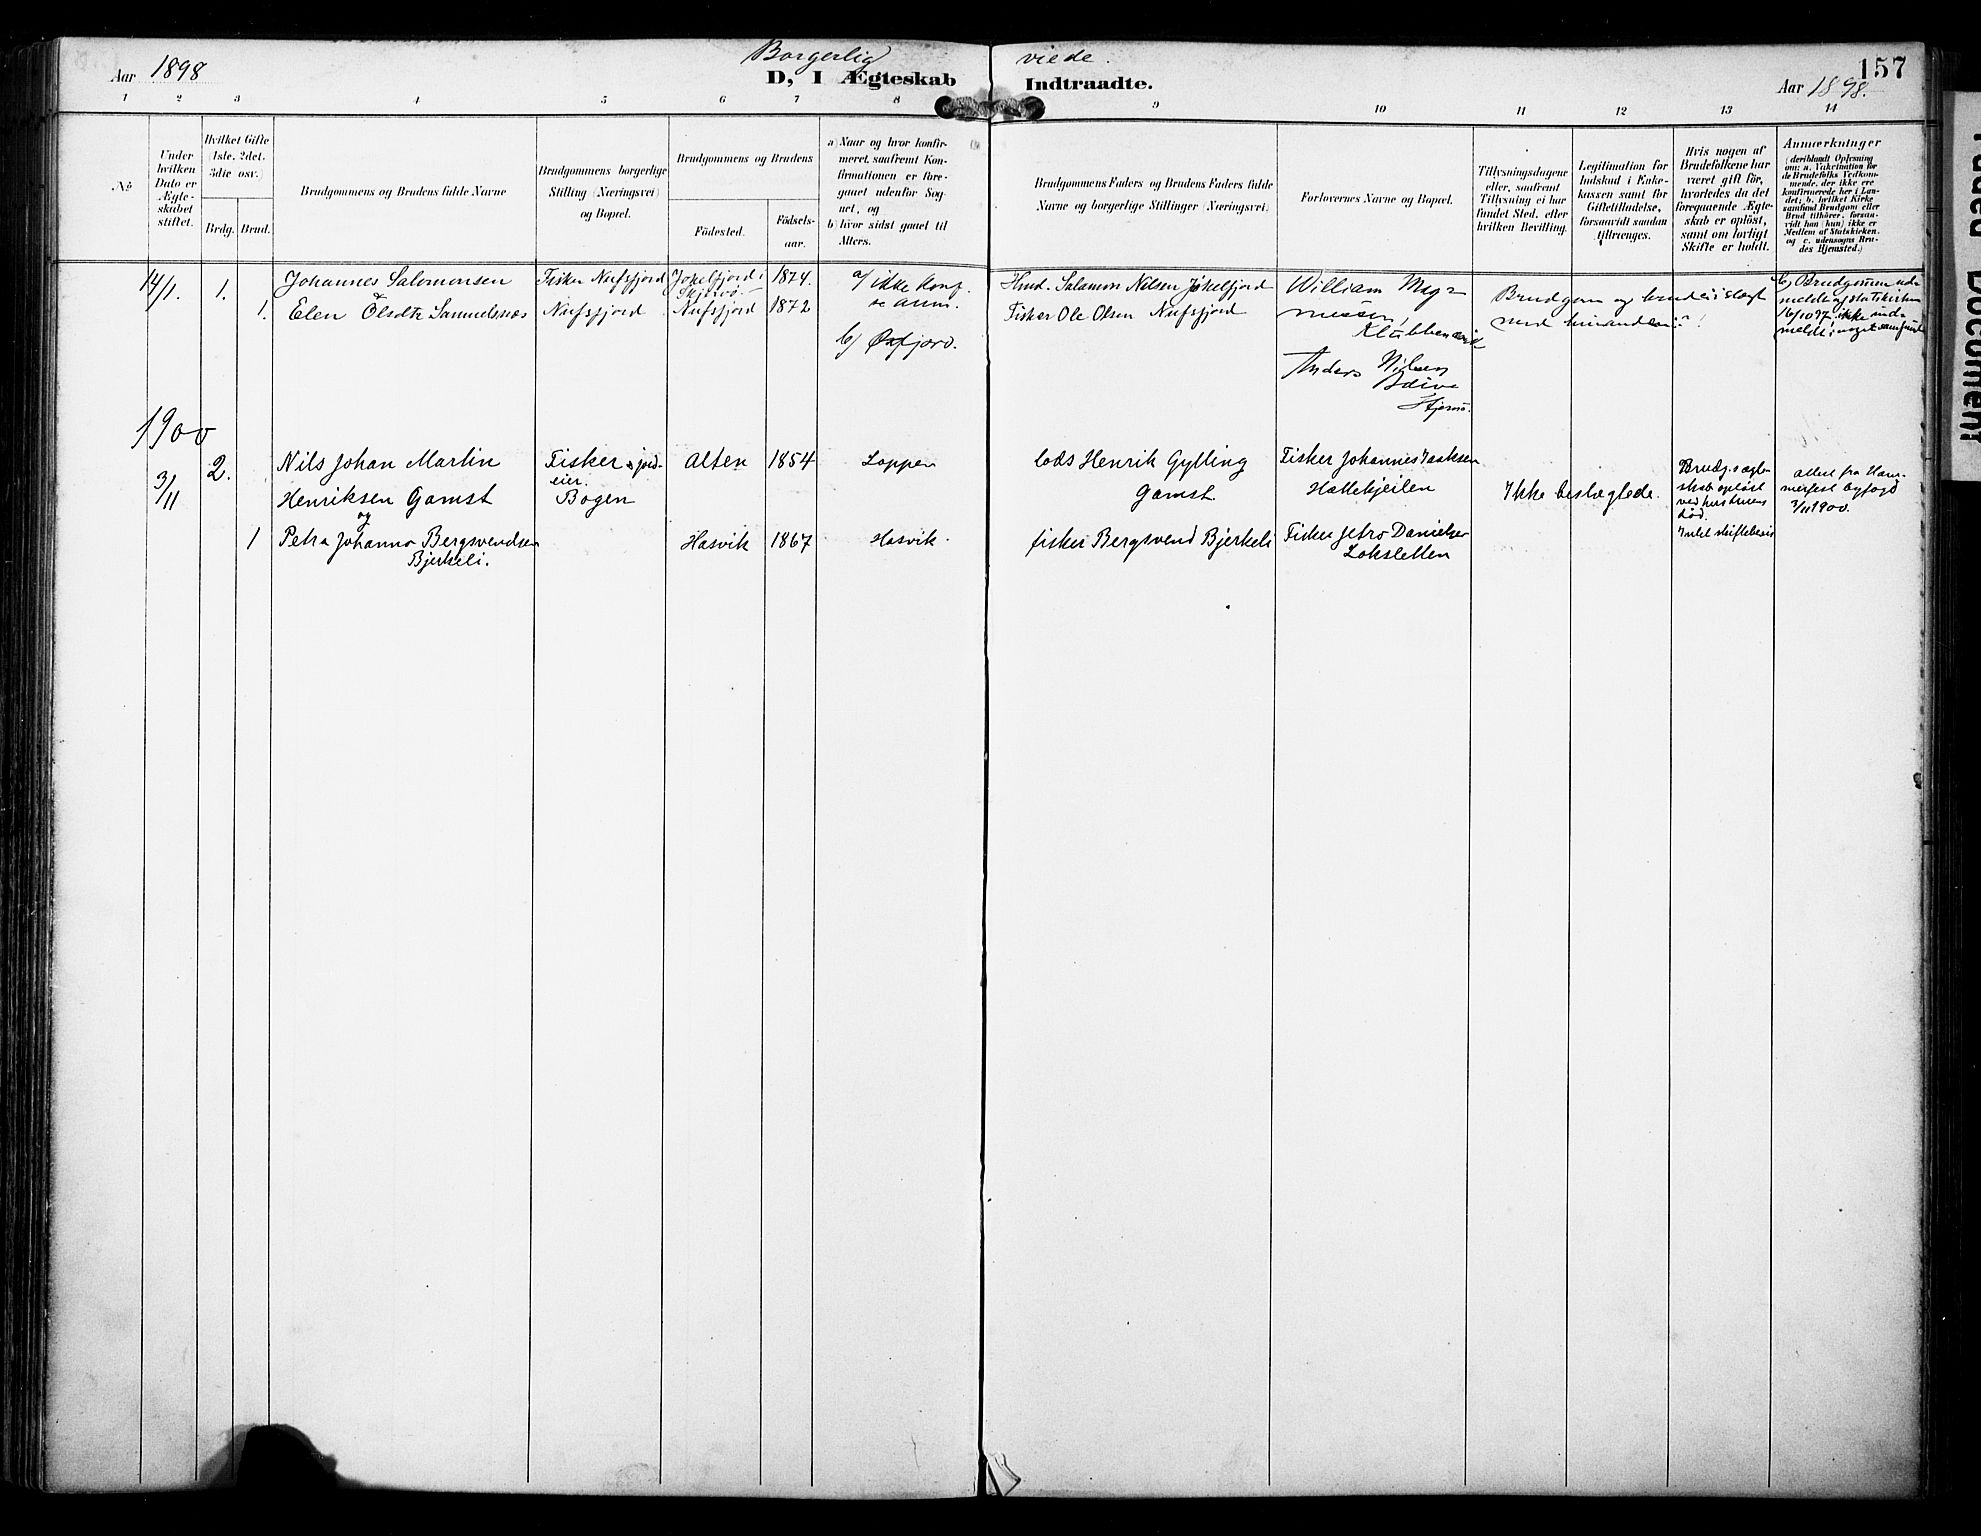 Aar 1898
Borgerlig viede.
D, I Ægteskab Indtraadte.
157
Aar 1898.
1 2 3 4 5 6 7 8 9 10 11 12 13 14
No
Under hvilken Dato er Ægteskabet stiftet.
Hvilket Gifte (1ste, 2det, 3die osv.)
Brdg. Brud.
Brudgommens og Brudens fulde Navne
Brudgommens borgerlige Stilling (Næringsvei) og Bopæl.
Brudgommens og Brudens
Födested.
Födsels-aar.
a) Naar og hvor konfirmeret, saafremt Konfirmationen er foregaaet udenfor Sognet, og
b) hvor sidst gaaet til Alters.
Brudgommens Faders og Brudens Faders fulde Navne og borgerlige Stillinger (Næringsvei)
Forlovernes Navne og Bopæl.
Tillysningsdagene eller, saafremt Tillysning ei har fundet Sted, efter hvilken Bevilling.
Legitimation for Indskud i Enkekassen samt for Giftetilladelse, forsaavidt saadan tiltrænges.
Hvis nogen af Brudefolkene har været gift før, hvorledes da det foregaaende Ægteskab er opløst, samt om lovligt Skifte er holdt.
Anmærkninger
(deriblandt Oplysning om: a. Vakcination for de Brudefolks Vedkommende, der ikke ere konfirmerede her i Landet; b. hvilket Kirkesamfund Brudgom eller Brud tilhörer, forsaavidt han (hun) ikke er Medlem af Statskirken, og c. udensogns Brudes Hjemsted.)
14/1. 1. Johannes Salomonsen Fisker Nufsfjord Jökelfjord i Skjervö 1874. a/ ikke konf. se anm. Hmd. Salamon Nilsen Jökelfjord William Magnussen, Klubbenæs
1. Elen Olsdtr Samuelsnæs Nufsfjord Nufsfjord 1872 Fisker Ole Olsen Nufsfjord
b/ Øxfjord.
Anders Nilsen
Brudgom og brud i slægt med hinanden
b) Brudgommen udmeldt af statskirken 16/10 97, ikke indmeldt i noget samfund
1900
3/11 2. Nils Johan Martin Henriksen Gamst Fisker & jordeier. Bogen Alten 1854 Loppen Lods Henrik Gylling Gamst. Fisker Johannes Isaksen Hættekjeilen
Ikke beslægtede.
Brudg.s ægteskab opløst ved hustruens död.
Intet skiftebevis
attest fra Hammerfest byfogd 3/11 1900.
og
1 Petra Johanna Bergsvendsen Bjerkeli. Hasvik 1867 Hasvik. fisker Bergsvend Bjerkeli Fisker Jetro Danielsen Loksletten